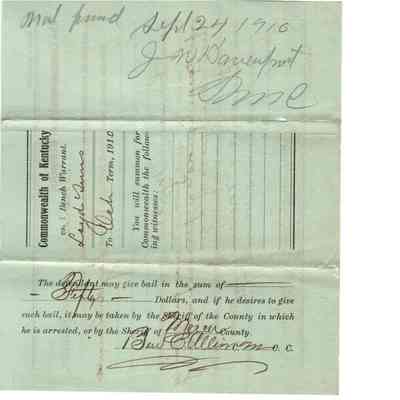 Not found Sept 24 1910
J W Davenport
SMC
Commonwealth of Kentucky
vs. } Bench Warrant.
Loyd Sims
To Feb Term, 1910
You will summon for
Commonwealth the follow-
ing witnesses:
The defendant may give bail in the sum of
Fifty Dollars, and if he desires to give
such bail, it may be taken by the Sheriff of the County in which
he is arrested, or by the Sheriff of Mercer County.
Ben C Allin C. C.